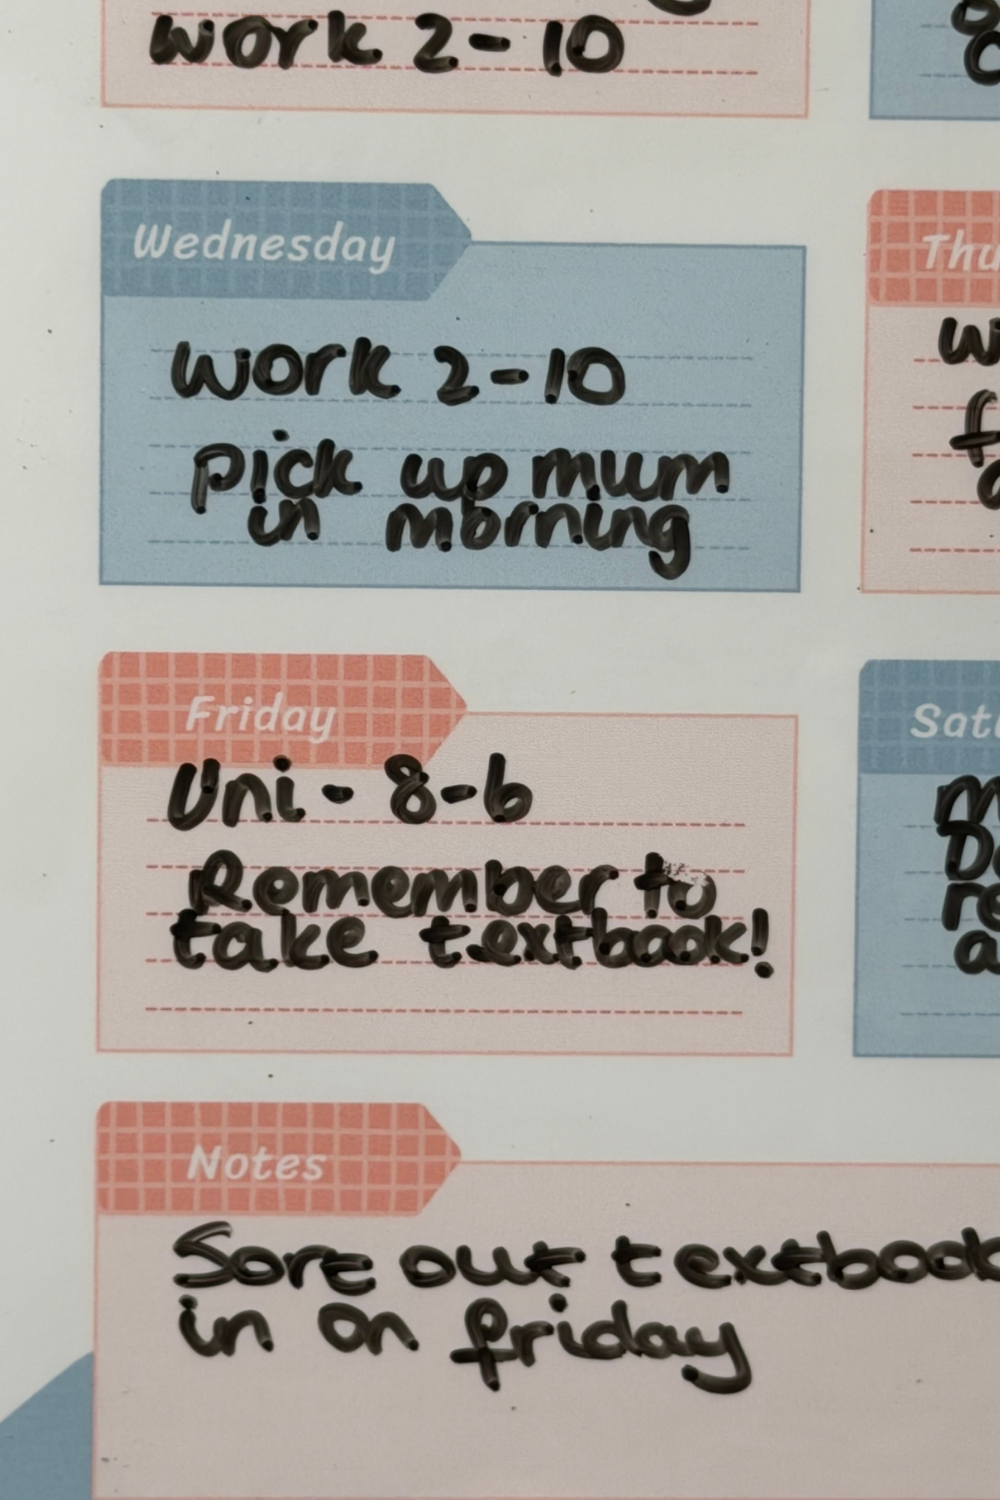 work 2-10
Wednesday
work 2-10
pick up mum
in morning
Friday
Uni - 8-6
Remember to
take textbook!
Notes
Sort out textbook
in on friday